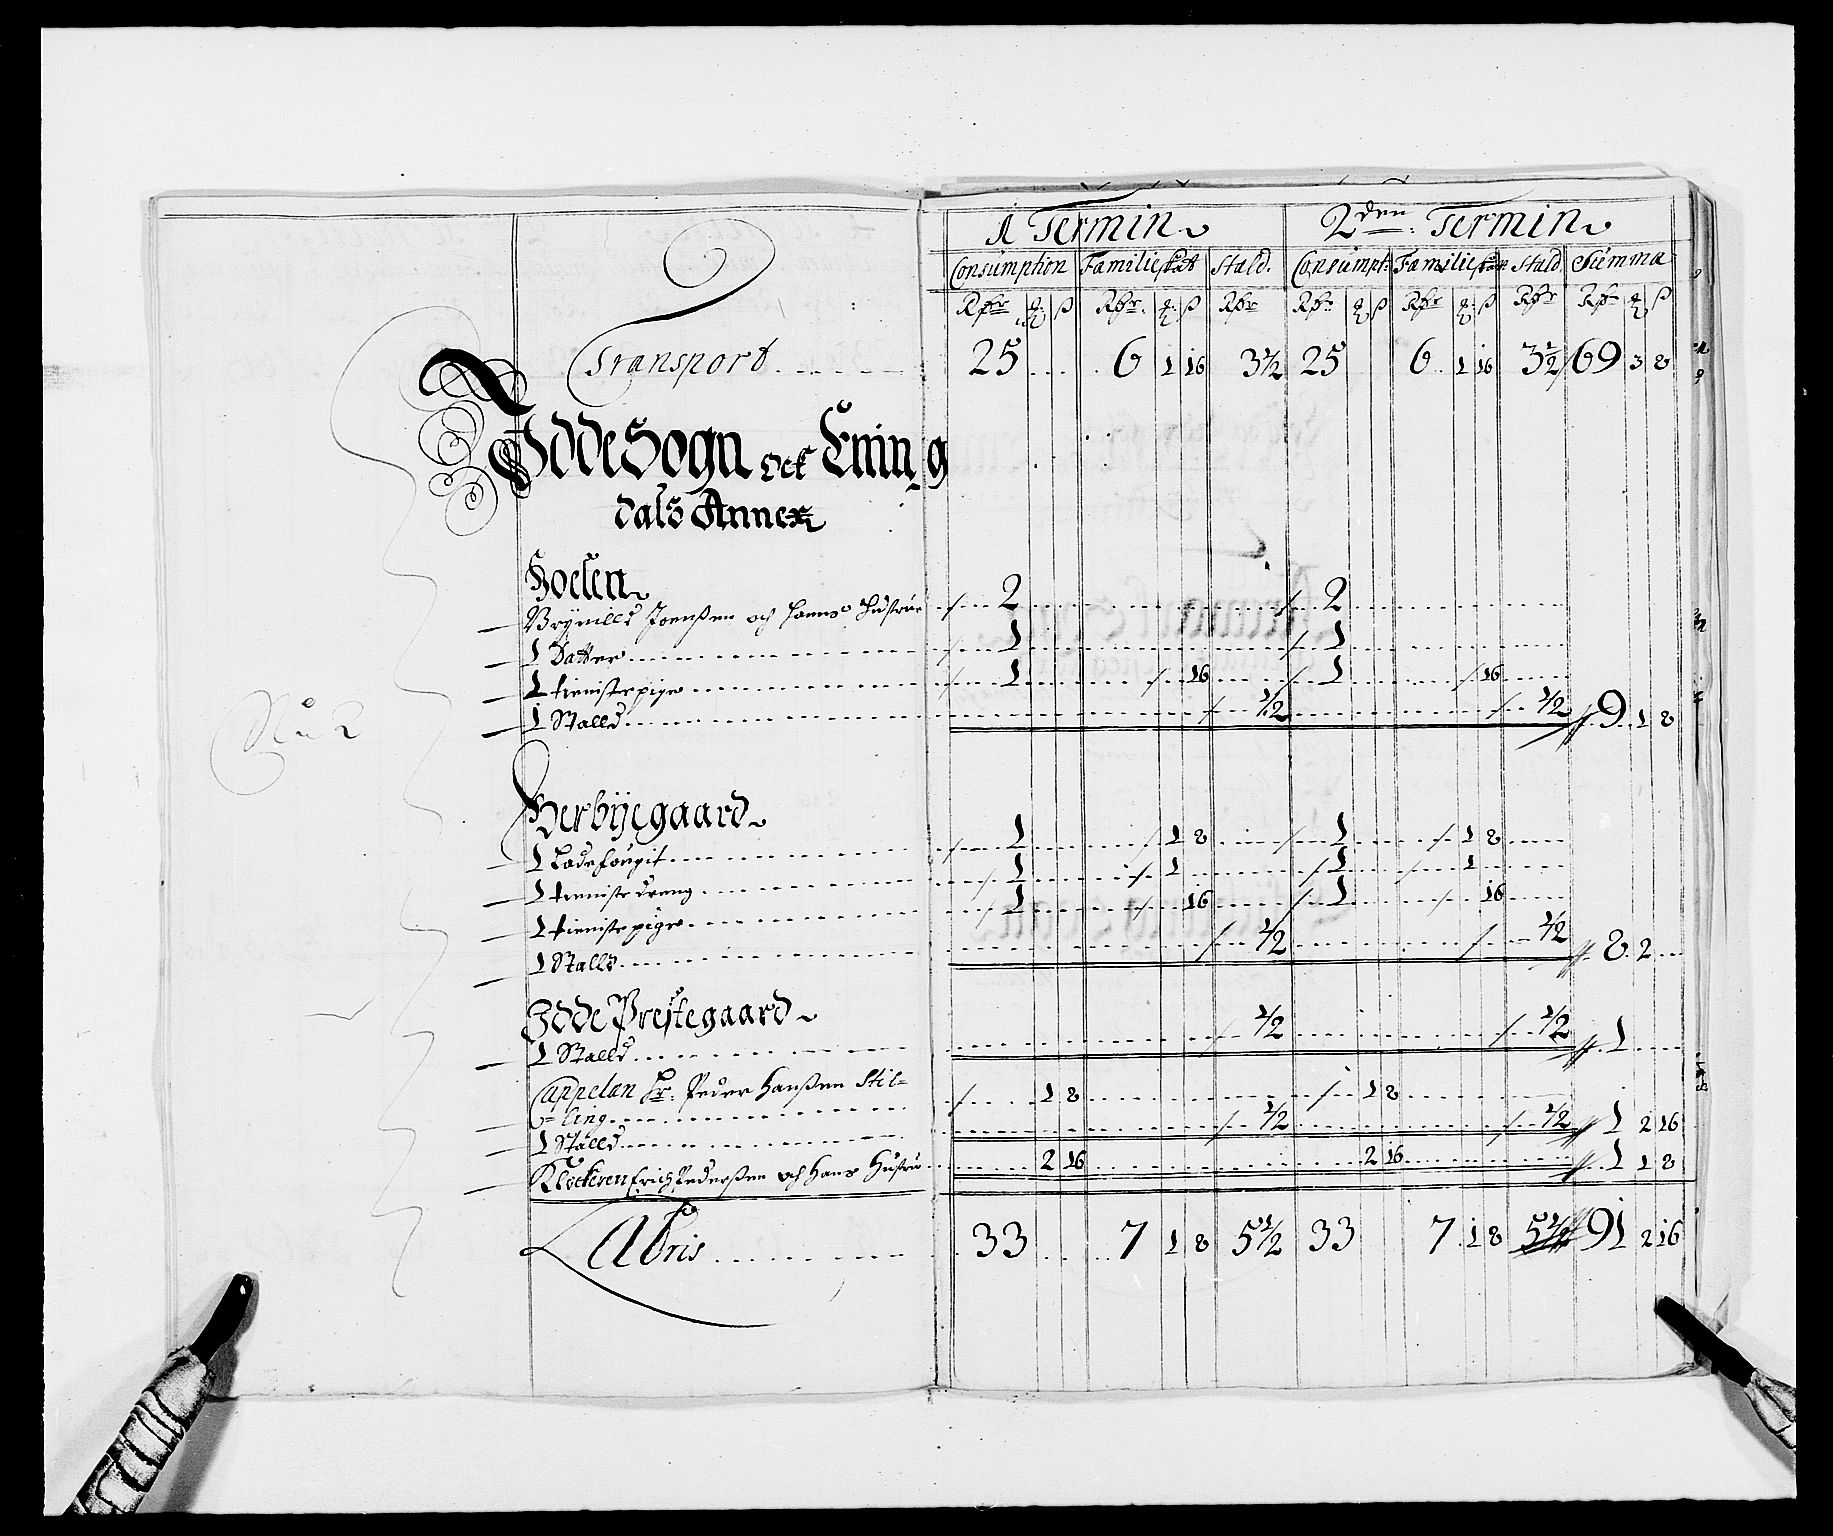 1 Termin 2den: Termin
Consumption Familieskat Stald. Consumpt: Familieskatt Stald Summa
Rdr ß Rdr. ß Rdr Rdr ß Rdr ß Rdr Rdr ß
Transport 25 6 1 16 3½ 25 6 1 16 3½ 69 3 8
Idde Sogn ock Enning
dals Annex
No 2
Hoelen
Joenßen och hanns Hustrue 2 2
1 Datter 1 1
1 tienistepige 1 16 1 16
1 Stalld ½ ½ 9 1 8
Herbÿegaard
1 Ladefougit 1 1 8 1 1 8
1 tieniste dreng 1 1 1 1
1 tienistepige 1 16 1 16
1 Stalld ½ ½ 8 2
Idde Prestegaard
1 Stalld ½ ½ 1
Cappelan Hr: Peder Hanßen Stil-
ling 1 8 1 8
1 Stalld ½ ½ 1 2 16
Klockeren Erich Pederßen och hans Hustru 2 16 2 16 1 1 8
Abris 33 7 1 8 5½ 33 7 1 8 5½ 91 2 16